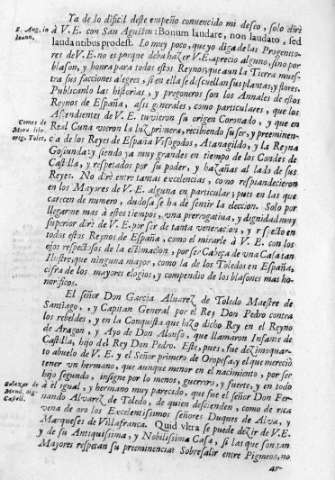 Ya de lo dificil deste empeño convencido mi deseo, solo dirè
S. Aug. in
Ioann.
à V. E. con San Agustin: Bonum laudare, non laudato, sed
laudantibus prodest. Lo muy poco, que yo diga de las Progenito-
res de V. E. no es porque deba haber V. E. aprecio alguno, sino por
blason, y honra para todos estos Reynos, que aun la Tierra mues-
tra sus facciones alegres, si en ella se descuellan sus plantas, y flores.
Publicanlo las historias, y pregoneros son los Annales de estos
Reynos de España, assi generales, como particulares, que los
Ascendientes de V. E. tuvieron su origen Coronado, y que en
Real Cuna vieron la luz primera, recibiendo su ser, y preeminen-
cia de los Reyes de España Visogodos, Atanagildo, y la Reyna
Gosjunda: y siendo ya muy grandes en tiempo de los Condes de
Castilla, y respetados por su poder, y hazañas al lado de sus
Reyes. No dirè entre tantas excelencias, como resplandecieron
en los Mayores de V. E. alguna en particular; pues en las que
carecen de numero, dudosa se ha de sentir la eleccion. Solo por
llegarme mas à estos tiempos, una prerrogativa, y dignidad muy
superior dirè de V. E. por ser de tanta veneracion, y respecto en
todos estos Reynos de España, como el mirarle à V. E. con los
ojos respectosos de la estimacion, por ser Cabeça de una Casa tan
Ilustre, que ninguna mayor, como la de los Toledos en España,
cifra de los mayores elogios, y compendio de los blasones mas ho-
norificos.
El señor Don Garcia Alvarez de Toledo Maestre de
Santiago, y Capitan General por el Rey Don Pedro contra
los rebeldes, y en la Conquista que hizo dicho Rey en el Reyno
de Aragon, y Ayo de Don Alonso, que llamaron Infante de
Castilla, hijo del Rey Don Pedro. Este, pues, fue dezimoquar-
to abuelo de V. E. y el Señor primero de Oropesa, y el que mereciò
tener un hermano, que aunque menor en el nacimiento, por ser
hijo segundo, insigne por lo menos, guerrero, y fuerte, y en todo
à el igual, y hermano muy parecido, que fue el señor Don Fer-
nando Alvarez de Toledo, de quien descienden, como de rica
vena de oro los Excelentissimos señores Duques de Alva, y
Marqueses de Villafranca. Quid ultra se puede dezir de V. E.
y de su Antiquissima, y Nobilissima Casa, si las que son tan
Mayores respetan su preeminencia? Sobresalir entre Pigmeos, no